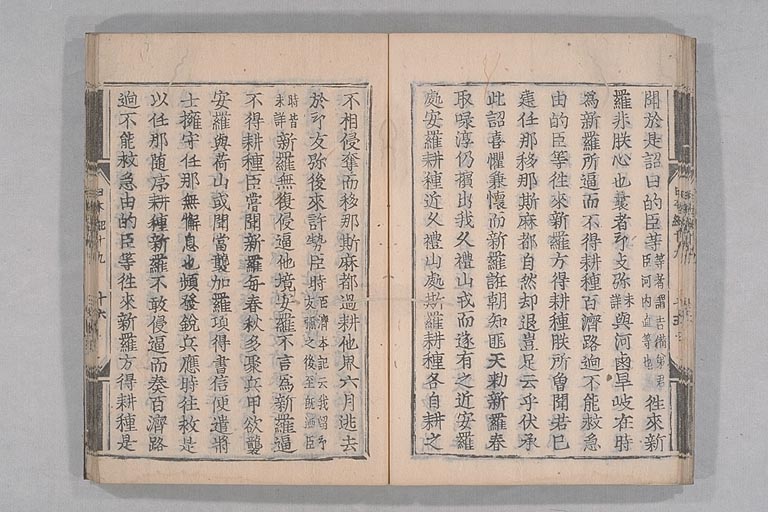 聞於是詔曰的臣等等者謂吉備弟君臣河內直等也往來新
羅非朕心也曩者印支弥未詳與阿鹵旱岐在時
為新羅所逼而不得耕種百濟路迥不能救急
由的臣等往來新羅方得耕種朕所曽聞若已
建任那移那斯麻都自然却退豈足云乎伏承
此詔喜懼兼懷而新羅誑朝知匪天勅新羅春
取㖨淳仍擯出我久禮山戍而遂有之近安羅
處安羅耕種近久禮山處斯羅耕種各自耕之
不相侵奪而移那斯麻都過耕他界六月逃去
於印支弥後來許勢臣時百濟本記云我留印支彌之後至既洒臣
時皆未詳新羅無復侵逼他境安羅不言為新羅逼
不得耕種臣嘗聞新羅每春秋多聚兵甲欲襲
安羅與荷山或聞當襲加羅項得書信便遣將
士擁守任那無懈息也頻發銳兵應時往救是
以任那随序耕種新羅不敢侵逼而奏百濟路
迥不能救急由的臣等往來新羅方得耕種是
日本紀十九
十六